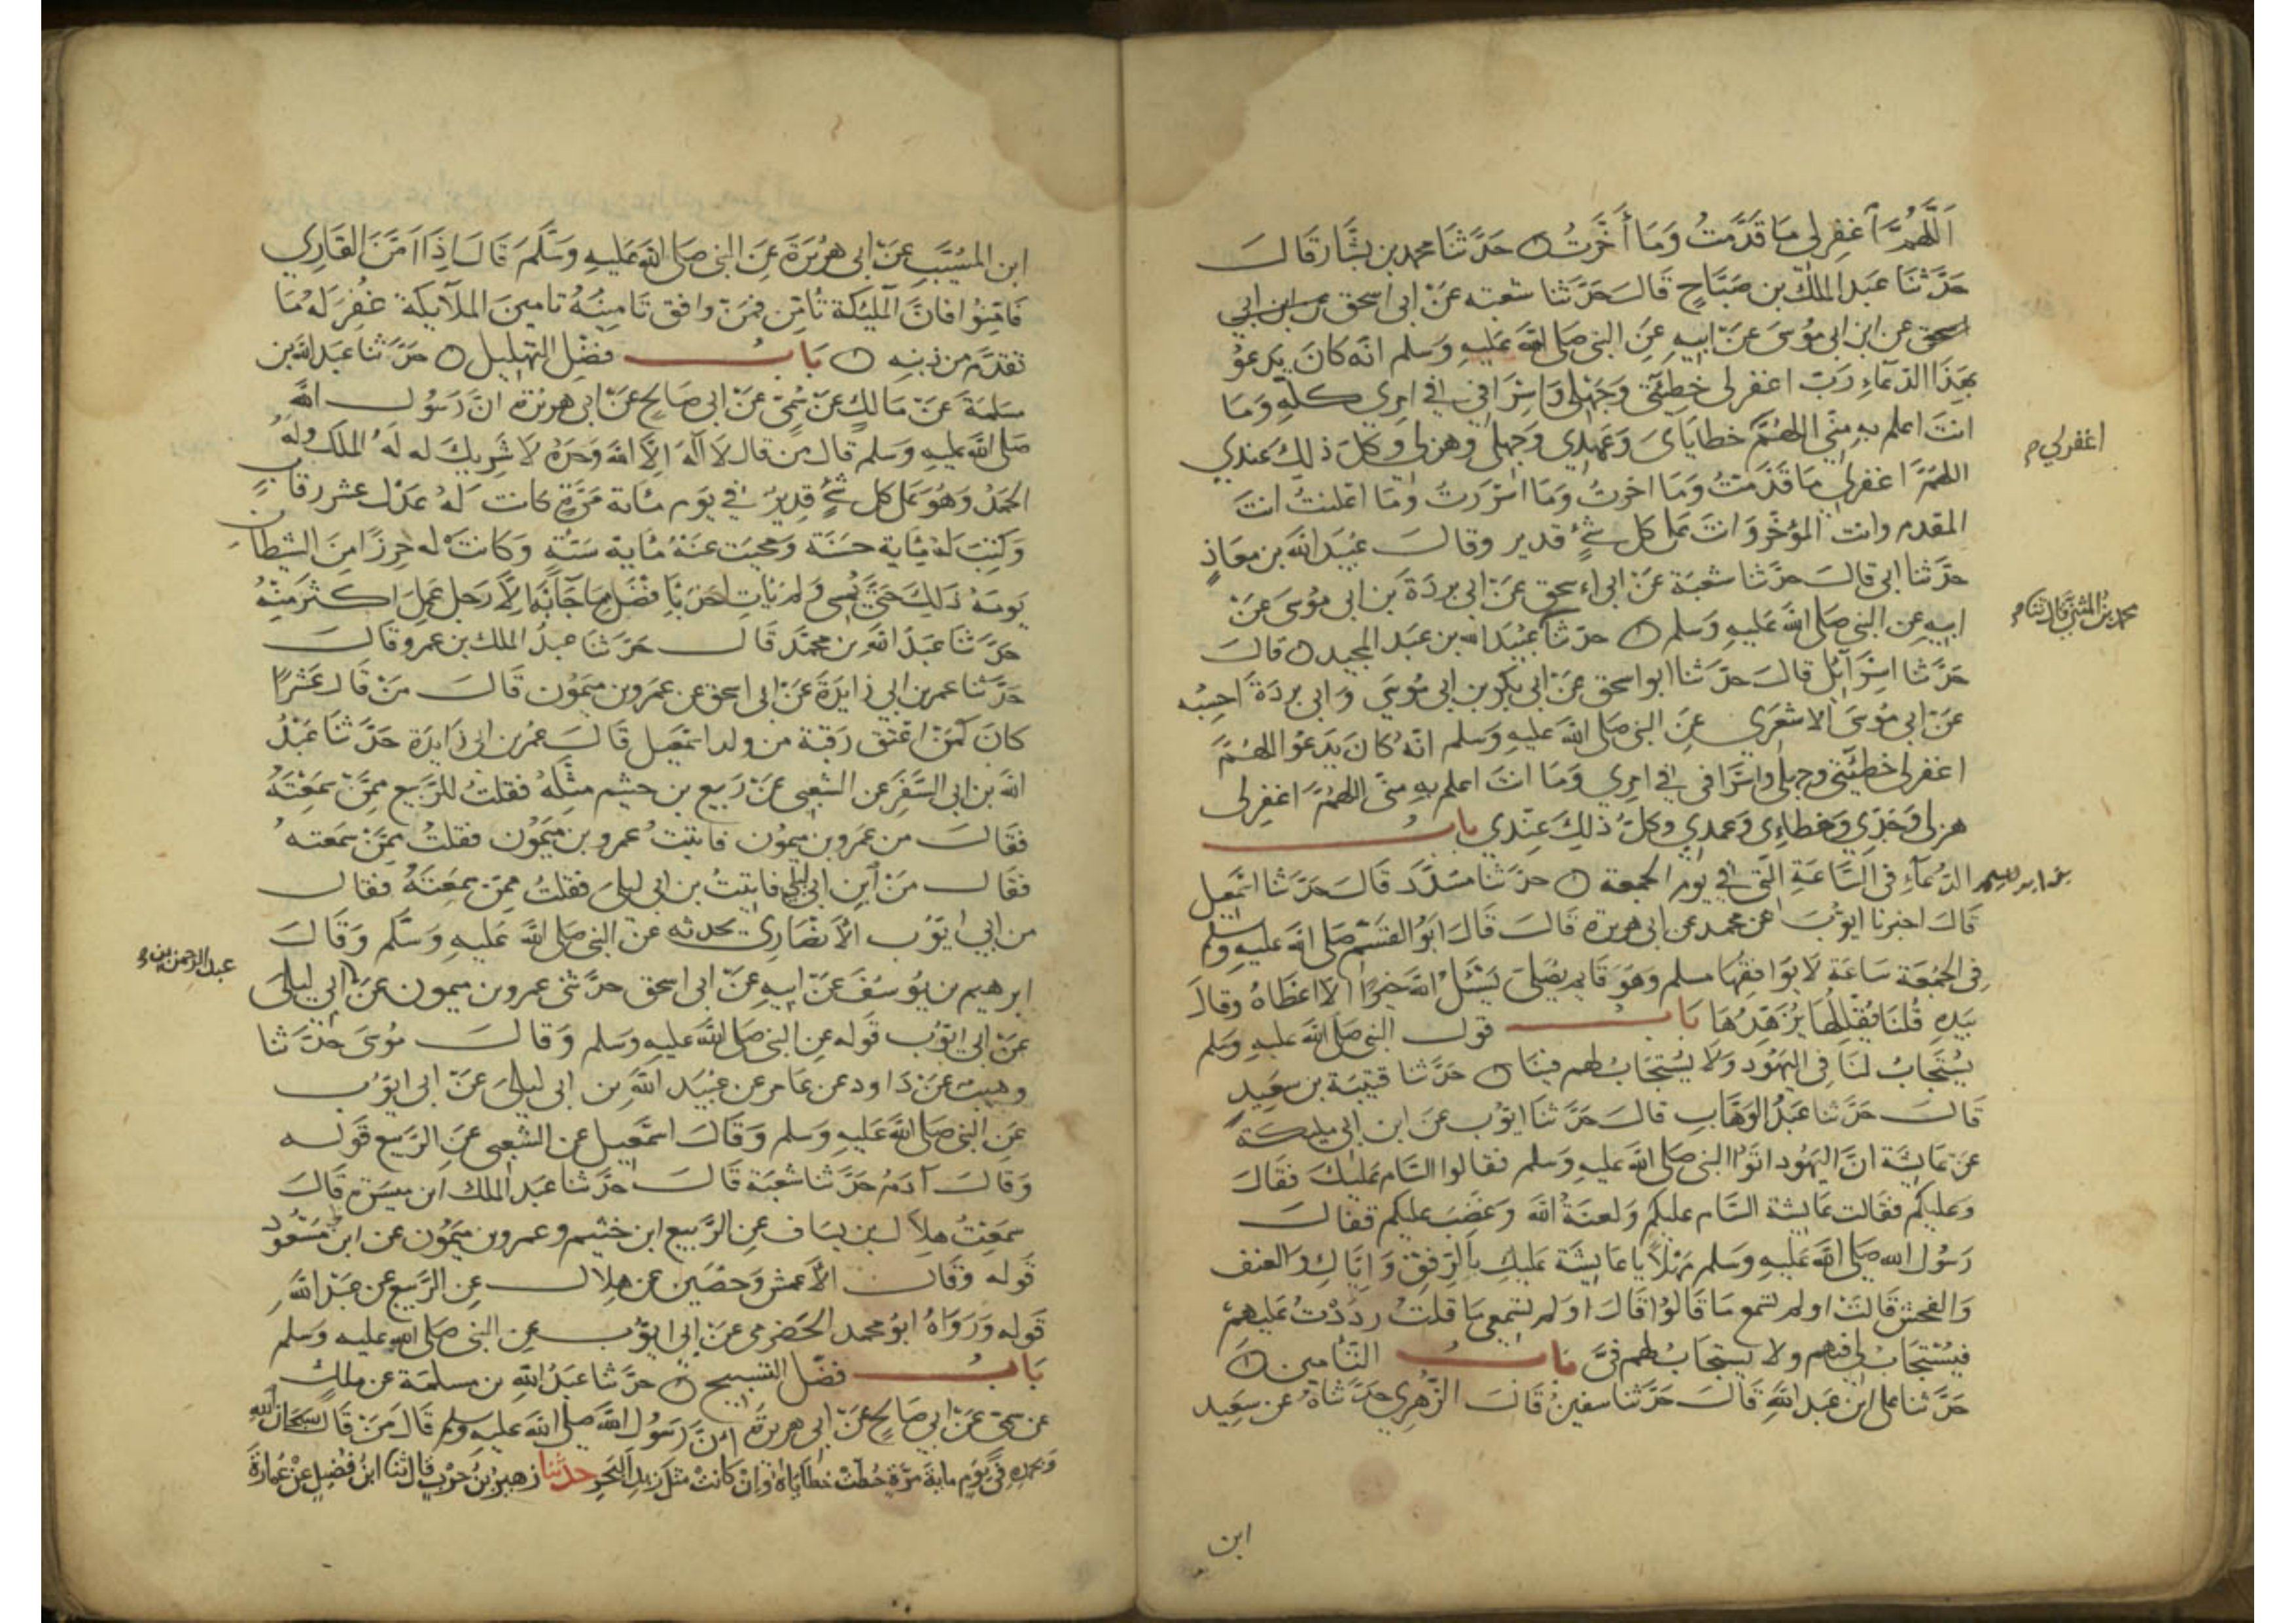 اَللَّهُمَّ اغفرلي مَا قَدَّمتُ وَمَا أَخَّرتُ حَدَّثنَا محمد بن بشَّار قَالَ
حَدَّثنَا عَبد الملك بن صَبَّاحٍ قَالَ حَدَّثنا شعبه عَنْ ابى اسحق عن ابن ابي
اسحق عن ابن ابى مُوسَى عَنْ ابيهِ عَنِ النبى صَلى الله عَليهِ وَسَلم انّه كانَ يَدعُو
بِهَذا الدّعَاءِ رَبّ اغفرلى خطِئَتى وَجَهلى وَاسْرَافى فى امرى كلّهِ وَمَا
انتَ اعلم به مِنّى اللهُمَّ خطايَاىَ وَعَمدِي وَجَهلى وهزلى وكلّ ذلِكَ عندي
اغفرلي م
اللهُمَّ اغفرلى مَا قَدَّمتُ وَمَا اخّرتُ وَمَا اسْرَرتُ وَمَا اعْلنتُ انتَ
المقدم وانت المؤخّر وَانتَ عَلى كل شىءٍ قدير وقالَ عُبَيد الله بن معَاذٍ
حدَّثنا ابى قالَ حدَّثنا شعبَة عَنْ ابى اسحق عَنْ ابى بردَة بن ابى مُوسَى عَنْ
محمد بن المثنى قال ثنا م
ابيهِ عِنِ النبى صَلى الله عَليهِ وَسَلم حدّثنا عُبيد الله بن عَبد المجيد قالَ
حَدَّثنا اسْرَآئل قالَ حَدّثنا ابو اسحق عَنْ ابى بكر بن ابى مُوسَى وَابى بردَة احسِبُه
عَنْ ابى مُوسَى الاشعَرى عِنِ النبى صَلى الله عَليهِ وَسلم انّه كانَ يَدعُو اللهُمَّ
اغفرلى خطيئَتى وجهلى واسْرَافى فى امرى وَمَا انتَ اعلم بهِ منّى اللهُمّ اغفِرلى
هزلى وَجَدّى وَخطاءى وَعمدي وكلّ ذلِكَ عِنْدى بابُ
الدّعَآءِ فى السَّاعَةِ الّتى فى يومِ الجمعة حدّثنا مسَدَّد قَالَ حَدّثنا اسمعيل
بن ابرهيم
قَالَ اخبرنا ايوّبَ عن محمد عن ابى هريرة قالَ قالَ ابَوُ القسِم صَلى الله عليهِ وسلم
فى الجمُعَة سَاعَة لا يوَافقهَا مسلم وَهُوَ قَايم يُصَلى يَسْئلُ الله خيرًا الا اعطَاهُ وقالَ
بَيدهِ قُلنَا يُقَلِّلُهَا يُزَهِّدُهَا بَابُ قول النبى صَلى الله عليهِ وسَلم
يُسْتجَابُ لنَا فى اليَهُود وَلا يُستَجَابُ لهم فينَا حَدَّثنا قتيبَة بن سعَيدٍ
قَالَ حَدَّثنا عَبدُ الوَهَّابِ قالَ حَدَّثنَا ايوّب عَنْ ابن ابى مليكة
عَن عَايشة انَّ اليَهُود اتوَا النبى صَلى الله عليهِ وسَلم فقالوا السّام عَليكَ فقالَ
وَعليكم فقالت عَايشة السّام عليكم وَلعنَة الله وَغضِبَ عليكم فقالَ
رَسُول الله صَلى الله عَليهِ وَسَلم مَهْلًا يا عَايشَة عَليكِ بالرّفقِ وَايّاكِ والعنف
وَالفحش قَالتْ اولم تسمع مَا قَالوُا قَالَ اوَلم تسمعى مَا قلتُ رَدَدْتُ عَليهم
فيُسْتجَابُ لى فيهم ولا يستجَابُ لهم فىّ بابُ التّأمين
حَدَّثنا على ابن عَبد اللهِ قَالَ حَدَّثنا سفين قالَ الزهرى حَدّثناهُ عن سَعيد
ابن
ابن المسَيَّب عَنْ ابى هُرَيرَةَ عَنِ النبى صَلى الله عَليهِ وَسَلَّم قَالَ اِذَا اَمَّنَ القَارِي
فَامِّنُوا فانَّ الملئكة تُأمّن فمنْ وافق تَامِينُهُ تامينَ الملآئكة غُفِرَ لَه مَا
تقدَّم من ذنبهِ بَابُ فضْل التهليل حَدَّثنا عَبد الله بن
مَسلمَةَ عَنْ مَالكٍ عَنْ سُمىّ عَنْ ابى صَالح عَنْ ابى هريرَة انَّ رَسُولَ الله
صَلى الله عليهِ وَسلم قال مَن قال لا آله الّا الله وَحدَهُ لا شَريكَ له لَهُ الملك ولهُ
الحمدُ وَهُوَ عَلى كل شىءٍ قدِير فى يَوم مائة مَرّةٍ كانت لهُ عَدْل عشر رقابٍ
وَكتِبَ لهُ مِاية حسَنَة وَمحيَت عَنهُ مُاية سَيّئةٍ وَكانت لَه حِرزًا مِنَ الشيطان
يَومَهُ ذَلِكَ حَتىّ يُمسى وَلم يَاتِ احَد بافضَل مِمَا جَآءَ بهِ الاّ رَجل عَمِلَ اكثرَ مِنْهُ
حَدَّثنا عَبدُ الله بن محمَّد قَالَ حَدَّثنا عبدُ الملك بن عمرو قالَ
حَدَّثنا عمر بن ابى زايدَةَ عَنْ ابى اسحق عن عمرو بن ميمُون قَالَ مَنْ قَالَ عَشرًا
كانَ كَمَنْ اعْتق رَقبَة من ولد اسمعيل قَالَ عُمر بن ابى زايدَة حَدَّثنا عَبدُ
الله بن ابى السَّفَر عَن الشّعبى عَنْ رَبيع بن خثيم مثْلَهُ فقلتُ للرَّبيع مِمَّنْ سَمِعْتَهُ
فقَالَ من عَمرو بن ميمُون فاتيْتُ عمرو بن مَيمُون فقلتُ ممَّنْ سمَعته
فقَالَ مَنْ ابن ابى ليلى فاتيتُ بن ابى ليلىَ فقلتُ ممِنَ سمِعتَهُ فقالَ
من ابى ايوُّب الاَنصَارى يحدثه عَنْ النبى صَلى الله عَليهِ وَسَلّم وَقَالَ
ابرهيم بن يُوسُفَ عَنْ ابيهِ عَنْ ابى اسحق حدَّثنى عمرو بن ميمون عَنْ ابى ليلى
عبد الرحمن بن م
عَنْ ابى ايّوب قَوله عنِ النبى صَلى الله عليهِ وَسَلم وَقالَ مُوسَى حَدّثنا
وهيب عَنْ دَاود عن عَامر عن عَبْيد الله بن ابى ليلىَ عَنْ ابى ايوب
عَنِ النبى صَلى الله عَليهِ وَسلم وَقَالَ اسمعيل عن الشعبى عَنِ الرَّبيع قَوله
وَقَالَ آدَمُ حَدَّثنا شعبَة قَالَ حدَّثنا عَبد الملك ابن ميسَرة قَالَ
سَمعَتُ هلَال بن يسَاف عَنِ الرَّبيع ابن خثيم وعمرو بن مَيمُون عن ابن مَسْعُود
قَوله وَقَالَ الاَعمش وَحصَين عن هلال عنِ الرَّبيع عن عَبْد الله
قَوله وَرَوَاهُ ابوُ محمد الحَضرمى عَنْ ابى ايوّب عن النبى صَلى الله عليهِ وسلم
بَابُ فضْل التسبيح حَدّثنا عَبدُ اللهِ بن مسلمَة عن مالك
عن سمىّ عَنْ ابى صَالح عَنْ ابى هريرَة انَّ رَسُول الله صَلى الله عَليهِ وسلم قالَ مَنْ قَالَ سُبحَانَ اللهِ
وَبحمدهِ فى يَوْم مايَة مَرَّةٍ حُطّتْ خطايَاهُ وَانْ كَانتْ مثلَ زَبدِ البَحرِ حدَّثنا زهيرُ بنُ حَرْبٍ قال ثنا ابنُ فضيلٍ عَنْ عُمارَةَ